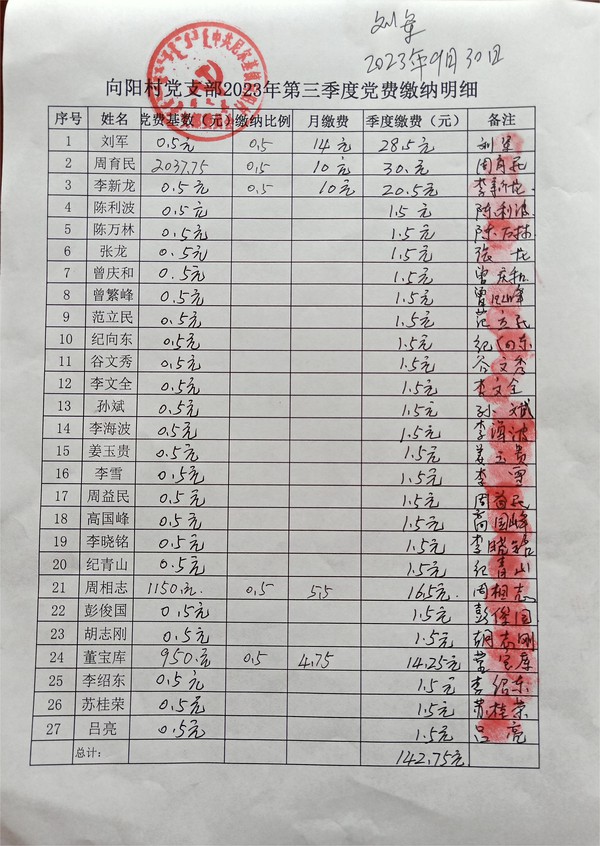 刘军
2023年9月30日
向阳村党支部2023年第三季度党费缴纳明细
序号 姓名 党费基数（元） 缴纳比例 月缴费 季度缴费（元） 备注
1 刘军 0.5元 0.5 14元 28.5元 刘军
2 周育民 2037.75 0.5 10元 30元 周育民
3 李新龙 0.5元 0.5 10元 20.5元 李新龙
4 陈利波 0.5元 1.5元 陈利波
5 陈万林 0.5元 1.5元 陈万林
6 张龙 0.5元 1.5元 张龙
7 曾庆和 0.5元 1.5元 曾庆和
8 曾繁峰 0.5元 1.5元 曾凡峰
9 范立民 0.5元 1.5元 范立民
10 纪向东 0.5元 1.5元 纪向东
11 谷文秀 0.5元 1.5元 谷文秀
12 李文全 0.5元 1.5元 李文全
13 孙斌 0.5元 1.5元 孙斌
14 李海波 0.5元 1.5元 李海波
15 姜玉贵 0.5元 1.5元 姜玉贵
16 李雪 0.5元 1.5元 李雪
17 周益民 0.5元 1.5元 周益民
18 高国峰 0.5元 1.5元 高国峰
19 李晓铭 0.5元 1.5元 李晓铭
20 纪青山 0.5元 1.5元 纪青山
21 周相志 1150元 0.5 5.5 16.5元 周相志
22 彭俊国 0.5元 1.5元 彭俊国
23 胡志刚 0.5元 1.5元 胡志刚
24 董宝库 950元 0.5 4.75 14.25元 董宝库
25 李绍东 0.5元 1.5元 李绍东
26 苏桂荣 0.5元 1.5元 苏桂荣
27 吕亮 0.5元 1.5元 吕亮
总计： 142.75元